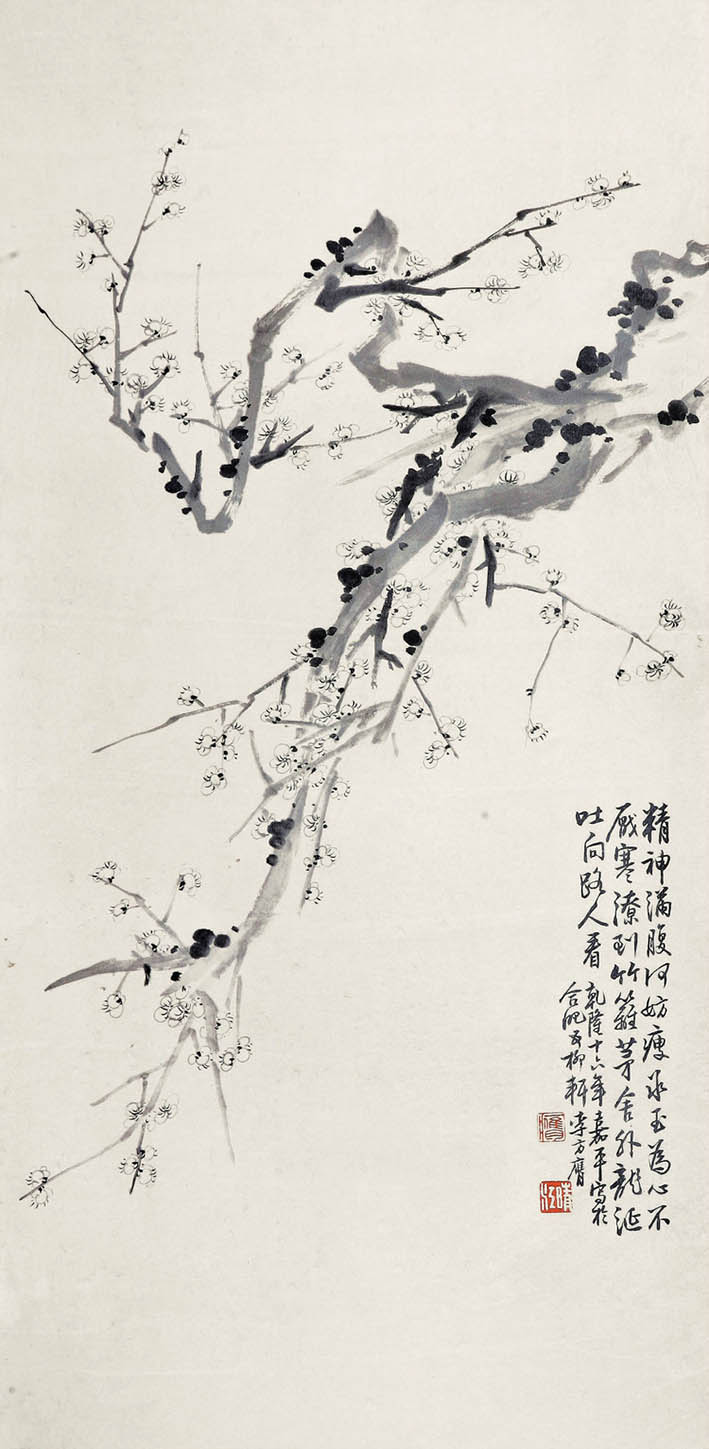 精神滿腹何妨瘦冰玉為心不
厭寒潦到竹籬茅舍外龍涎
吐向路人看
乾隆十六年嘉平寫於
合肥五柳軒李方膺